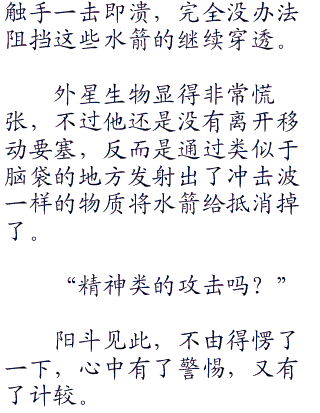 触手一击即溃，完全没办法
阻挡这些水箭的继续穿透。
外星生物显得非常慌
张，不过他还是没有离开移
动要塞，反而是通过类似于
脑袋的地方发射出了冲击波
一样的物质将水箭给抵消掉
了。
“精神类的攻击吗？”
阳斗见此，不由得愣了
一下，心中有了警惕，又有
了计较。